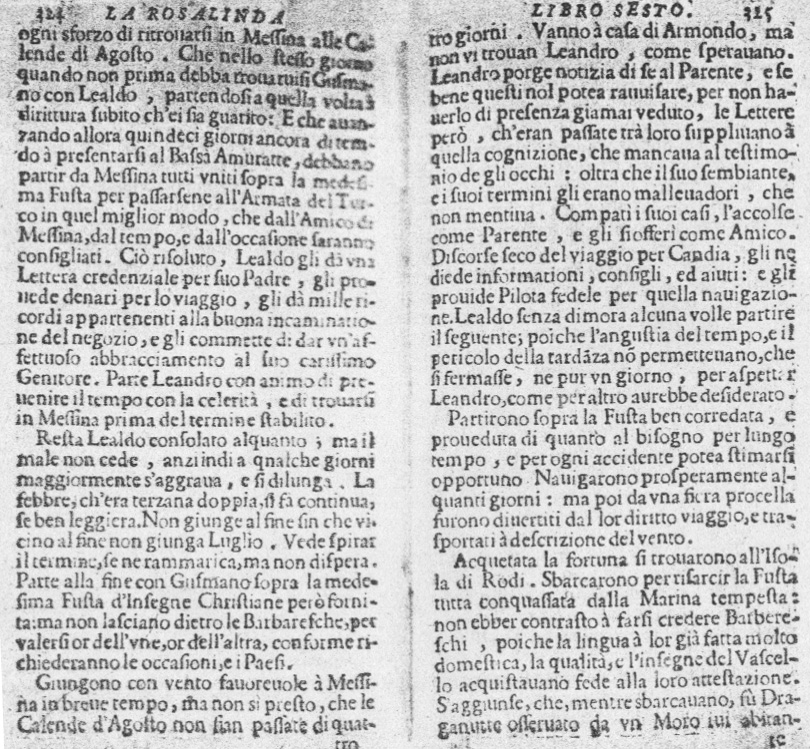 324 LA ROSALINDA
ogni sforzo di ritrouarsi in Messina alle Ca-
lende di Agosto . Che nello stesso giorno
quando non prima debba trouaruisi Gusma-
no con Lealdo , partendosi a quella volta à
dirittura subito ch'ei sia guarito: E che auan-
zando allora quindeci giorni ancora di tem-
do à presentarsi al Bassà Amuratte, debbano
partir da Messina tutti vniti sopra la medesi-
ma Fusta per passarsene all'Armata del Tur-
co in quel miglior modo , che dall'Amico di
Messina,dal tempo,e dall'occasione saranno
consigliati. Ciò risoluto, Lealdo gli dà vna
Lettera credenziale per suo Padre , gli pro-
uede denari per lo viaggio , gli dà mille ri-
cordi appartenenti alla buona incaminatio-
ne del negozio, e gli commette di dar vn'af-
fettuoso abbracciamento al suo carissimo
Genitore. Parte Leandro con animo di pre-
uenire il tempo con la celerità , e di trouarsi
in Messina prima del termine stabilito.
Resta Lealdo consolato alquanto ; ma il
male non cede , anzi indi a qnalche giorni
maggiormente s'aggraua , e si dilunga . La
febbre, ch'era terzana doppia,si fà continua,
se ben leggiera.Non giunge al fine sin che vi-
cino al fine non giunga Luglio . Vede spirar
il termine,se ne rammarica,ma non dispera.
Parte alla fine con Gusmano sopra la mede-
sima Fusta d'Insegne Christiane però forni-
ta:ma non lasciano dietro le Barbaresche,per
valersi or dell'vne,or dell'altra, conforme ri-
chiederanno le occasioni,e i Paesi.
Giungono con vento fauoreuole à Messi-
na in breue tempo, ma non si presto, che le
Calende d'Agosto non sian passate di quat-
tro
LIBRO SESTO. 325
tro giorni . Vanno à casa di Armondo, ma
non vi trouan Leandro , come sperauano.
Leandro porge notizia di se al Parente, e se
bene questi nol potea rauuisare, per non ha-
uerlo di presenza giamai veduto, le Lettere
però , ch'eran passate trà loro suppliuano à
quella cognizione, che mancaua al testimo-
nio de gli occhi : oltra che il suo sembiante,
e i suoi termini gli erano malleuadori , che
non mentiua . Compatì i suoi casi, l'accolse
come Parente , e gli si offerì come Amico.
Discorse seco del viaggio per Candia, gli ne
diede informationi, consigli, ed aiuti: e gli
prouide Pilota fedele per quella nauigazio-
ne.Lealdo senza dimora alcuna volle partire
il seguente; poiche l'angustia del tempo,e il
pericolo della tardāza nō permetteuano,che
si fermasse, ne pur vn giorno , per aspettar
Leandro,come per altro aurebbe desiderato.
Partirono sopra la Fusta ben corredata, e
proueduta di quanto al bisogno per lungo
tempo , e per ogni accidente potea stimarsi
opportuno Nauigarono prosperamente al-
quanti giorni : ma poi da vna fiera procella
furono diuertiti dal lor diritto viaggio,e tra-
sportati à descrizione del vento.
Acquetata la fortuna si trouarono all'Iso-
la di Rodi . Sbarcarono per risarcir la Fusta
tutta conquassata dalla Marina tempesta:
non ebber contrasto à farsi credere Barbere-
schi , poiche la lingua à lor già fatta molto
domestica, la qualità, e l'insegne del Vascel-
lo acquistauano fede alla loro attestazione.
S'aggiunse, che, mentre sbarcauano, fù Dra-
ganutte osseruato da vn Moro iui abitan-
te